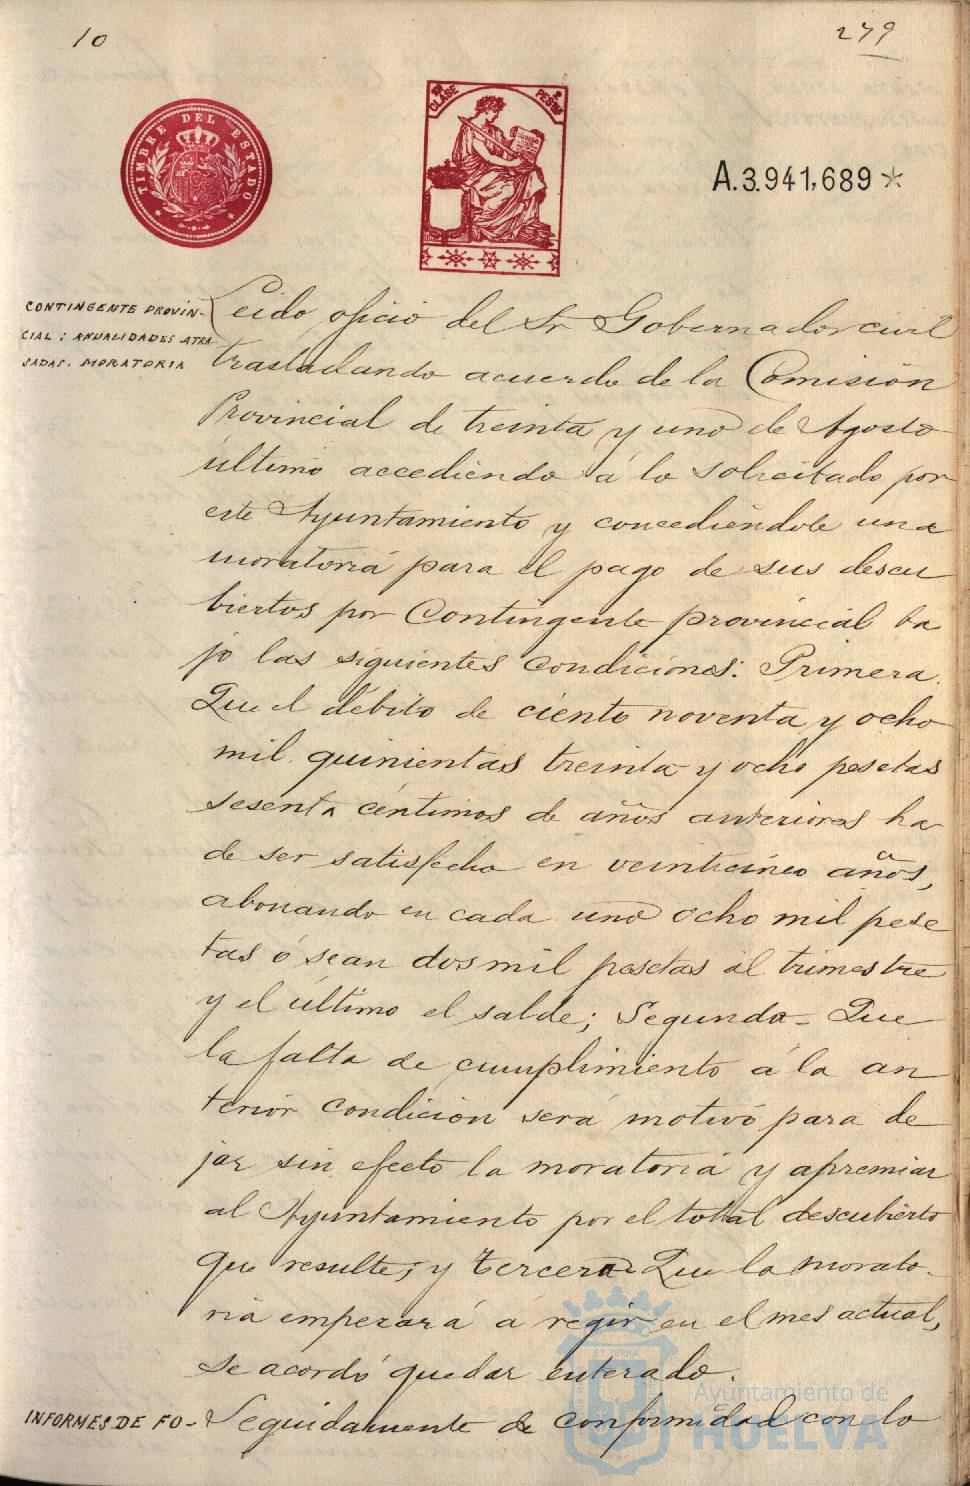 10
279
TIMBRE DEL ESTADO
10ª CLASE
2 PESETAS
A.3.941,689*
CONTINGENTE PROVIN-
CIAL: ANUALIDADES ATRA
SADAS. MORATORIA
Leido oficio del Sr Gobernador civil
trasladando acuerdo de la Comisión
Provincial de treinta y uno de Agosto
último accediendo á lo solicitado por
este Ayuntamiento y concediéndole una
moratoria para el pago de sus descu
biertos por Contingente provincial ba
jo las siguientes condiciones: Primera.
Que el débito de ciento noventa y ocho
mil quinientas treinta y ocho pesetas
sesenta céntimos de años anteriores ha
de ser satisfecho en veinticinco años,
abonando en cada uno ocho mil pese
tas ó sean dos mil pesetas al trimestre
y el último el saldo; Segunda- Que
la falta de cumplimiento á la an
terior condición será motivo para de
jar sin efecto la moratoria y apremiar
al Ayuntamiento por el total descubierto
que resulte; y tercera Que la morato-
ria empezará á regir en el mes actual,
se acordó quedar enterado.
INFORMES DE FO-
Seguidamente de conformidad con lo
ET TERRÆ
Ayuntamiento de
HUELVA